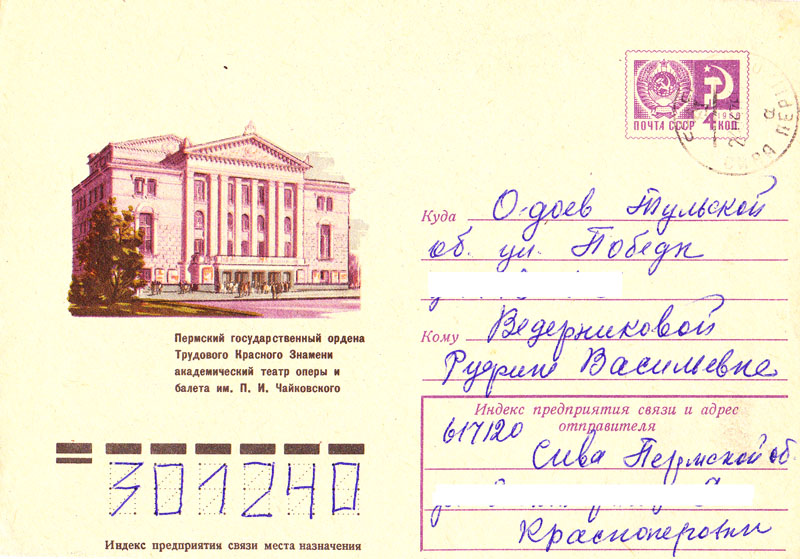 ПОЧТА СССР 4 КОП.
1966
Пермский государственный ордена
Трудового Красного Знамени
академический театр оперы и
балета им. П. И. Чайковского
Куда О-доев Тульской
об. ул. Победы
Кому Ведерниковой
Василевне
Индекс предприятия связи и адрес
отправителя
617120
Сива Пермской об.
301240
Индекс предприятия связи места назначения